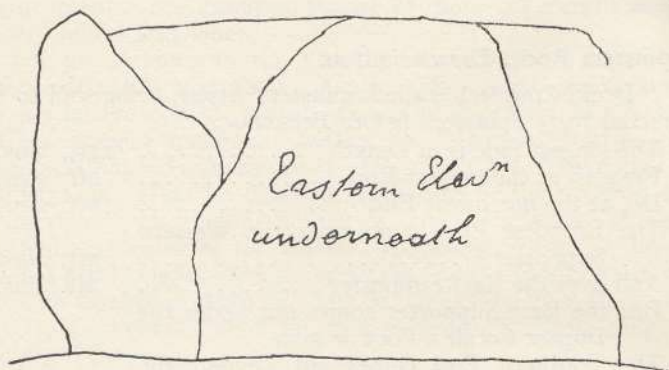 Eastern Elevⁿ
underneath